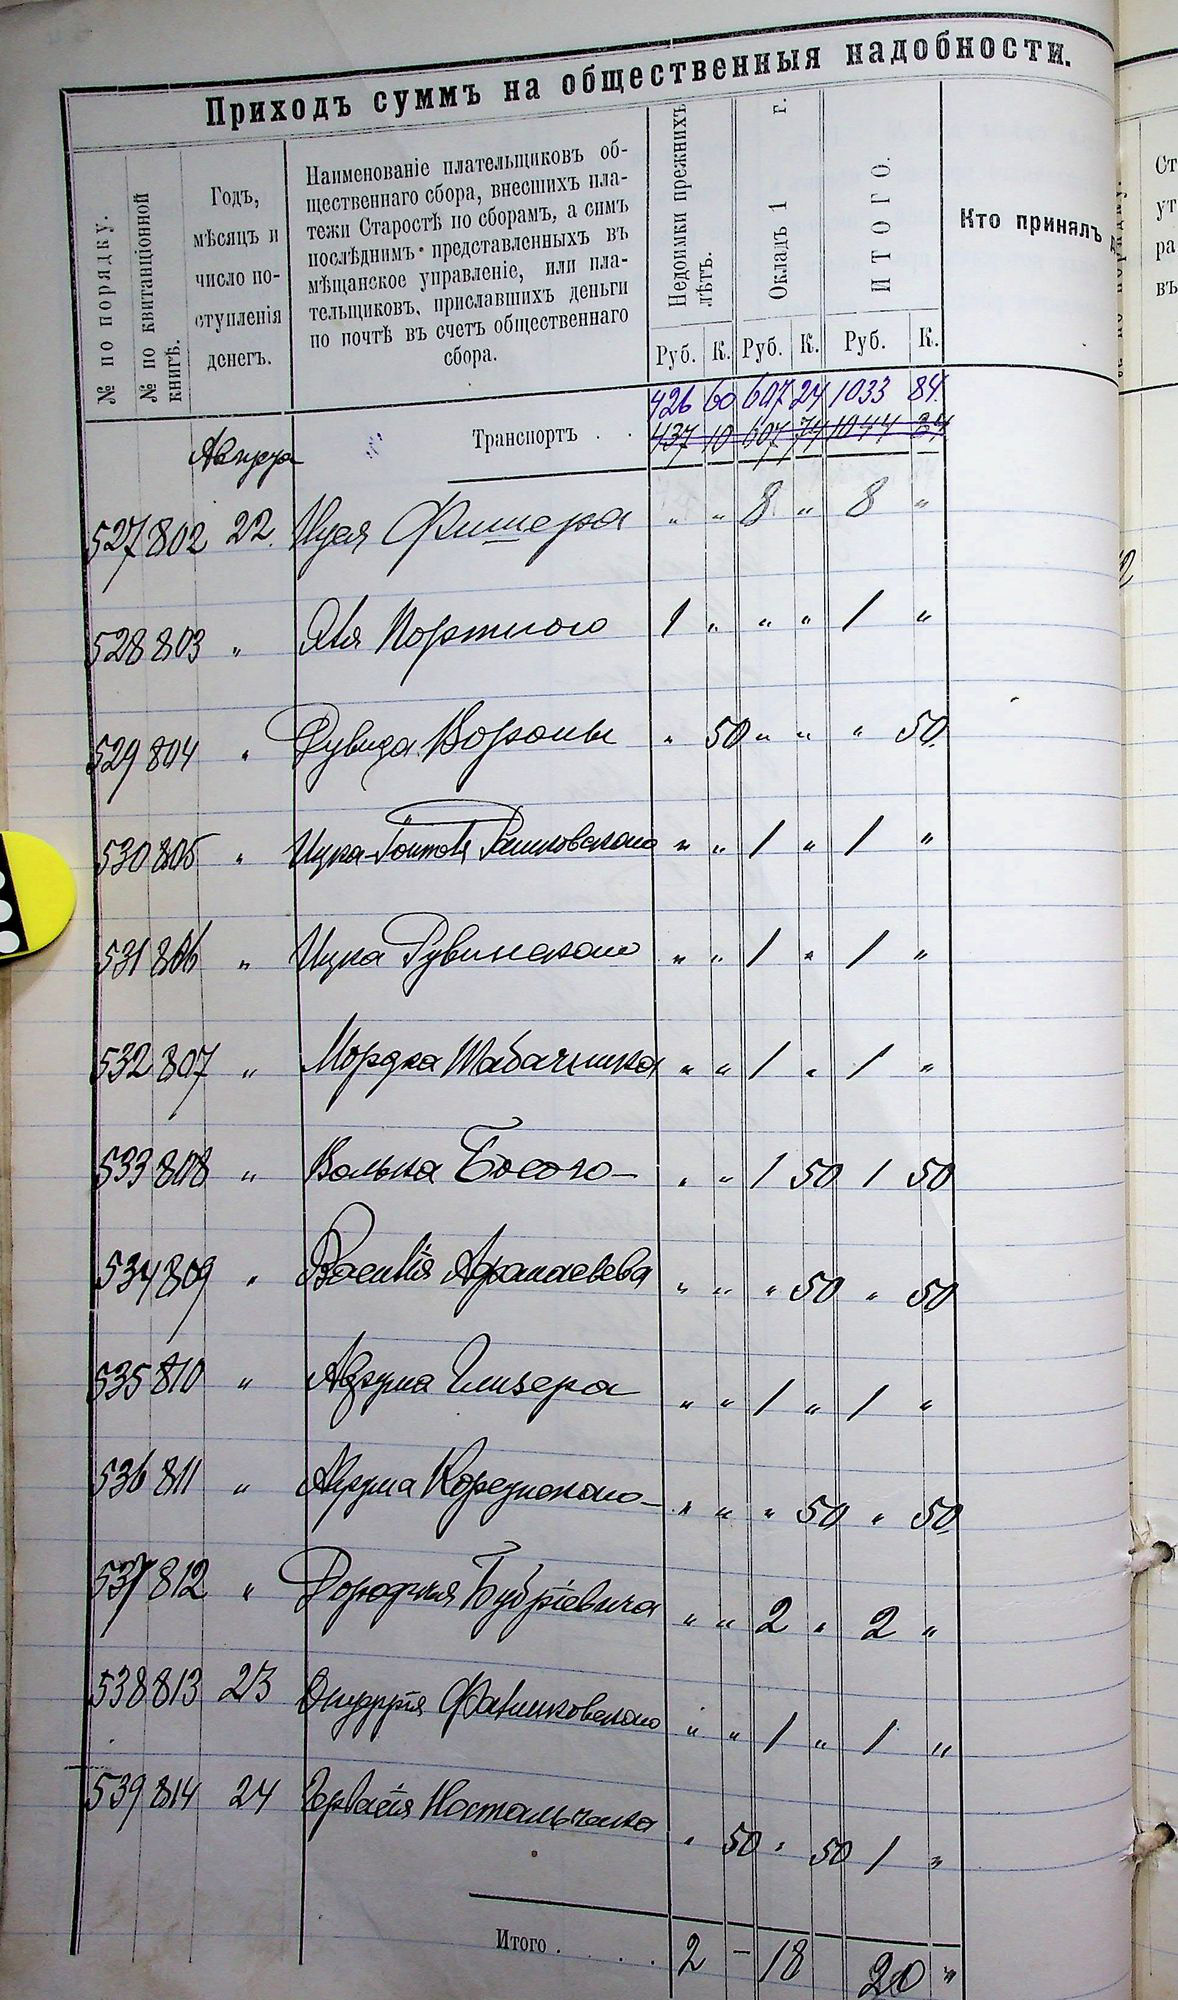 Приходъ суммъ на общественныя надобности.
№ по порядку.
№ по квитанціонной книгѣ.
Годъ,
мѣсяцъ и
число по-
ступленія
денегъ.
Наименованіе плательщиковъ об-
щественнаго сбора, внесшихъ пла-
тежи Старостѣ по сборамъ, а симъ
послѣднимъ представленныхъ въ
мѣщанское управленіе, или пла-
тельщиковъ, приславшихъ деньги
по почтѣ въ счетъ общественнаго
сбора.
Недоимки прежнихъ лѣтъ.
Окладъ 1 г.
ИТОГО.
Кто принялъ
Руб. К. Руб. К. Руб. К.
426 60 607 24 1033 84
Транспортъ . . 437 10 607 74 1044 84
527 802 22 Фишера " " 8 " 8 "
528 803 " Портного 1 " " " 1 "
529 804 " Рувида Вороны " 50 " " " 50
530 805 " Ицка " " 1 " 1 "
531 806 " Ицка Рувинскаго " " 1 " 1 "
532 807 " Мордка Табачника " " 1 " 1 "
533 808 " Волька Босого " " 1 50 1 50
534 809 " Василія " " " 50 " 50
535 810 " Абрума Глизера " " 1 " 1 "
536 811 " Абрума " " " 50 " 50
537 812 " " " 2 " 2 "
538 813 23 " " 1 " 1 "
539 814 24 Гервасія " 50 " 50 1 "
Итого . . . . 2 — 18 20 "